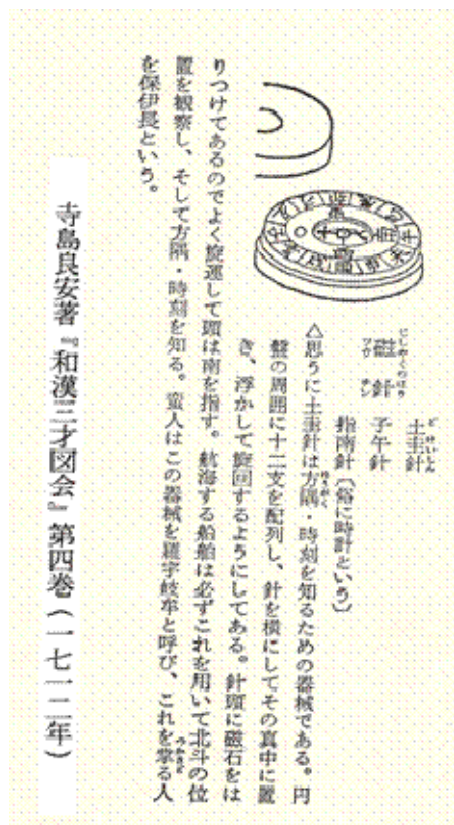 磁針
じしゃくのはり
ツウ チン
土圭針
どけいしん
子午針
指南針〔俗に時計という〕
△思うに土圭針は方隅・時刻を知るための器械である。円
盤の周囲に十二支を配列し、針を横にしてその真中に置
き、浮かして旋回するようにしてある。針頭に磁石をは
りつけてあるのでよく旋運して頭は南を指す。航海する船舶は必ずこれを用いて北斗の位
置を観察し、そして方隅・時刻を知る。蛮人はこの器械を羅字岐牟と呼び、これを掌る人
を保伊長という。
寺島良安著『和漢三才図会』第四巻(一七一二年)